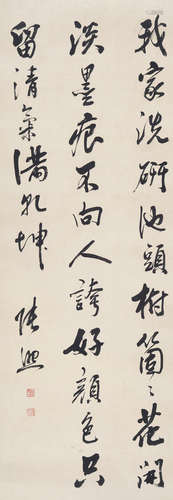 我家洗研池頭樹箇〻花開
淡墨痕不向人誇好顏色只
留清氣滿乾坤 張照